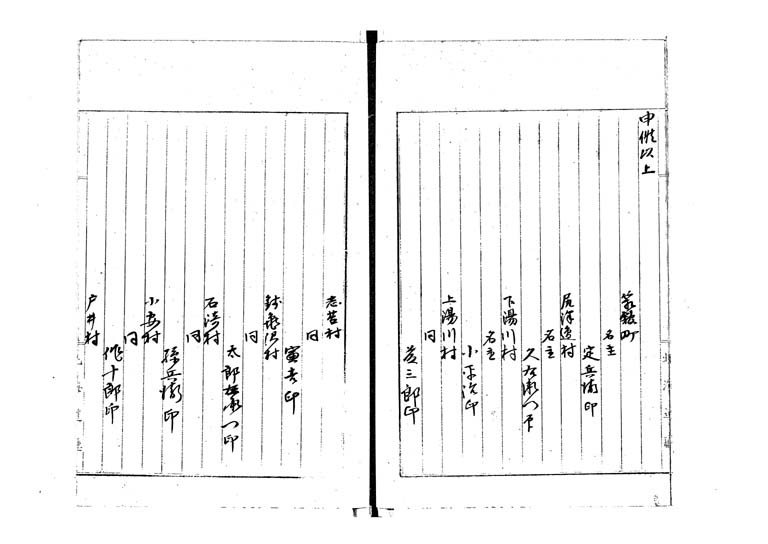 申供以上
箱館町
名主
定兵衛印
尻沢辺村
名主
久右衛門印
下湯川村
名主
小平治印
上湯川村
同
善三郎印
志苔村
同
寅吉印
銭亀沢村
同
太郎左衛門印
石崎村
同
孫兵衛印
小安村
同
作十郎印
戸井村